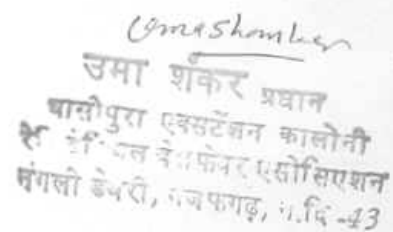 Umashanker
उमा शंकर प्रधान
धासीपुरा एक्सटेंशन कालोनी
वेलफेयर एसोसिएशन
नंगली डेयरी, नजफगढ़, न.दि-43